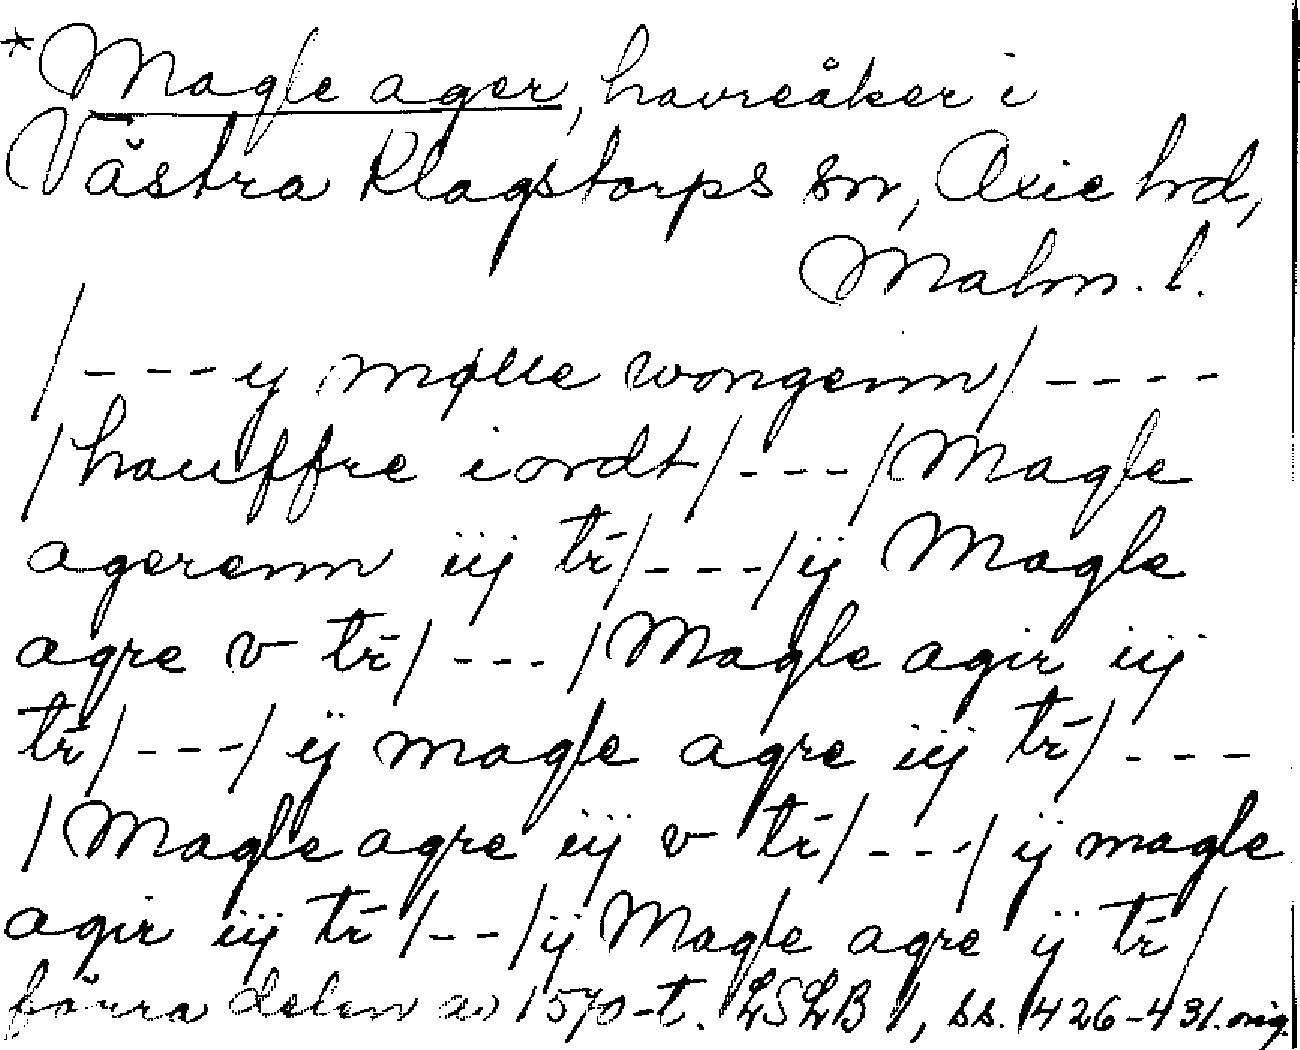 *Magle ager, havreåker i
Västra Klagstorps sn, Oxie hd,
Malm. l.
/---y mølle wongenn/----
/hauffre iordt/---/Magle
agerenn iij tr̄/---/ij Magle
agre v tr̄/---/Magle agir iij
tr̄/---/ij magle agre iij tr̄/---
/Magle agre iij v tr̄/---/ij magle
agir iij tr̄/--/ij Magle agre ij tr̄/
förra delen av 1570-t. LSLB 1, ss. 426-431. orig.